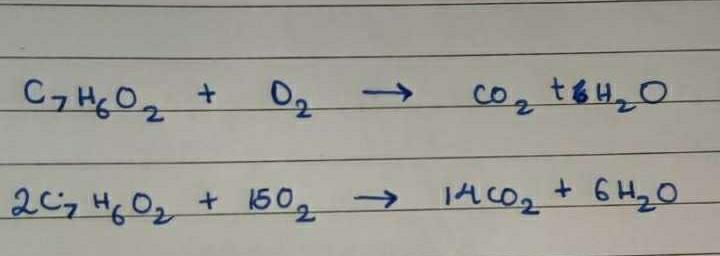 C₇H₆O₂ + O₂ → CO₂ + H₂O
2C₇H₆O₂ + 15O₂ → 14CO₂ + 6H₂O